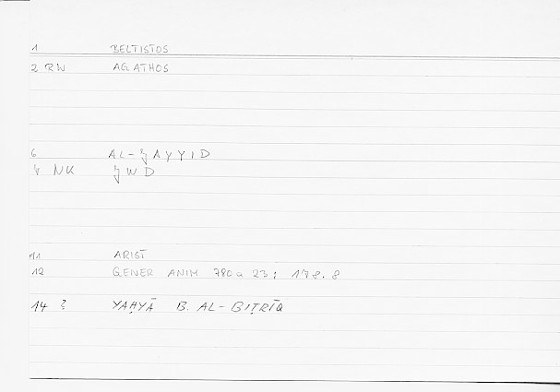 1 BELTISTOS
2 RW AGATHOS
6 AL-ǦAYYID
NK ǦWD
11 ARIST
12 GENER ANIM 780a 23; 178.8
14 YAḤYĀ B. AL-BIṬRĪQ